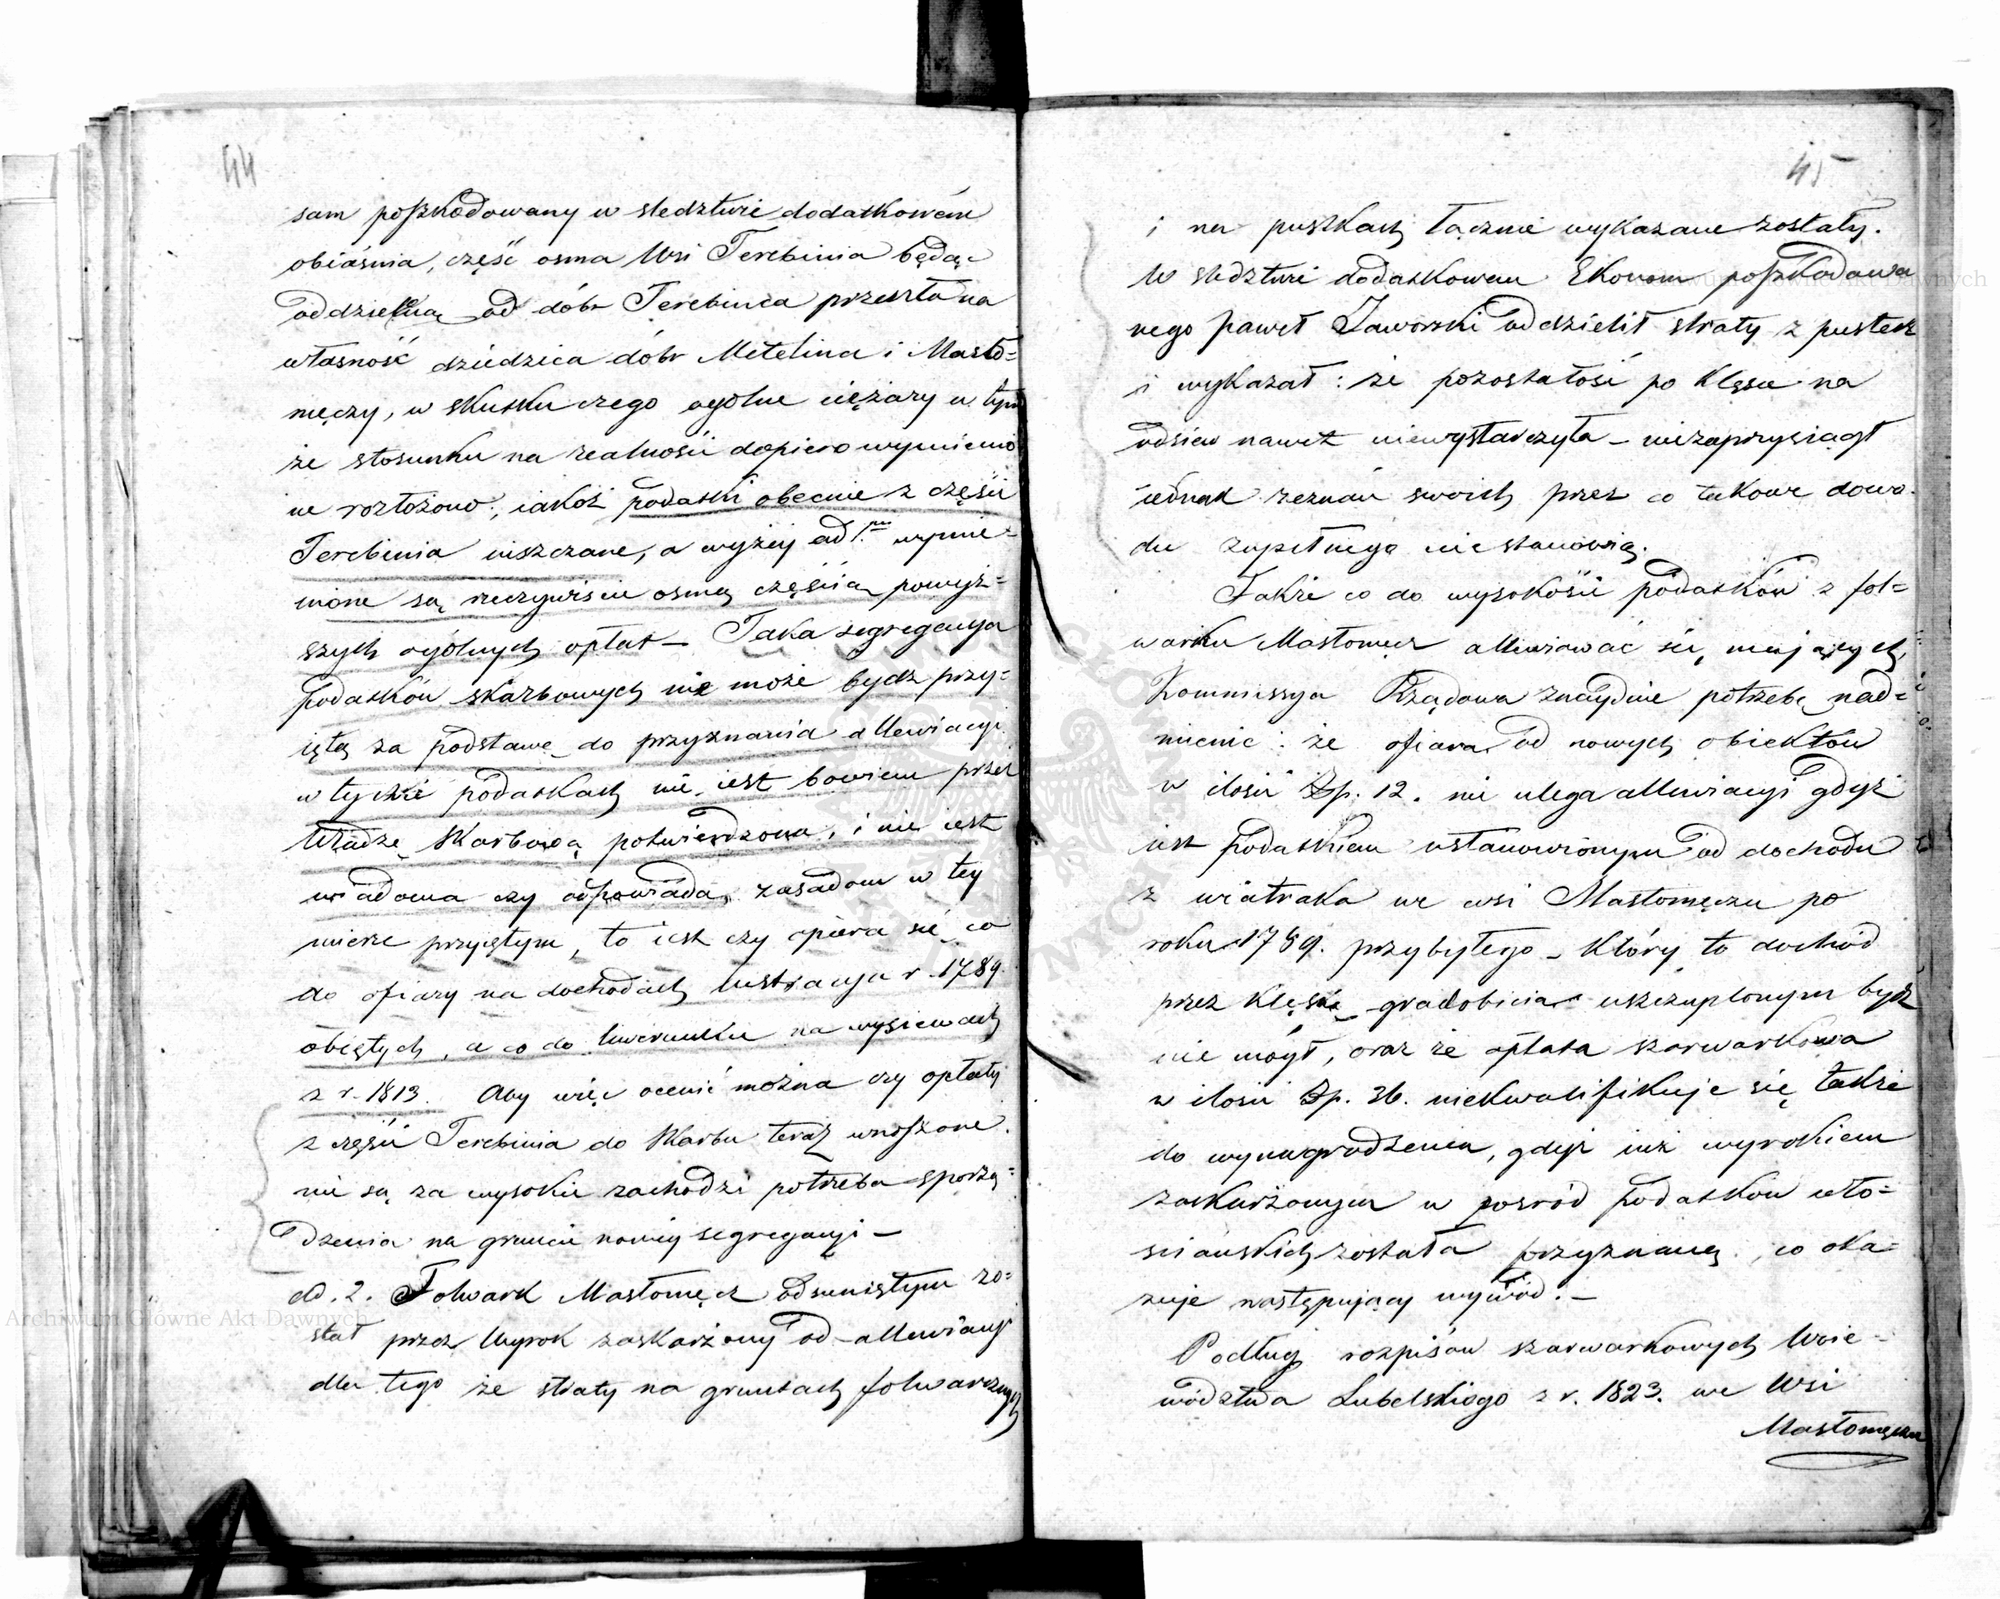 44
sam poszkodowany w sledztwie dodatkowém
obiaśnia, część osma Wsi Terebinia będąc
oddzielną od dóbr Terebinca przeszła na
własność dziedzica dóbr Metelina i Masło=
męczy, w skutku czego ogólne ciężary w tym
że stosunku na realności dopiero wymienio
ne rozłożono, iakoż podatki obecnie z części
Terebinia uiszczane, a wyżéy ad 1. wymie=
nione są rzeczywiscie osmą częścią powyż=
szych ogólnych opłat — Taka segregacya
podatków skarbowych nie może bydź przy=
iętą za podstawę do przyznania allewiacyi
w tychże podatkach nie iest bowiem przez
Władzę Skarbową potwierdzona, i nie iest
wiadoma czy odpowiada zasadom w tey
mierze przyiętym, to iest czy opiera się co
do ofiary na dochodach lustracyą r. 1789.
obiętych, a co do liwerunku na wysiewach
z r. 1813. Aby więc ocenić można czy opłaty
z części Terebinia do Skarbu teraz wnoszone
nie są za wysokie zachodzi potrzeba sporzą=
dzenia na gruncie nowéy segregacyi —
ad. 2. Folwark Masłomęcz odsuniętym zo=
stał przez Wyrok zaskarżony od allewiacyi
dla tego że straty na gruntach folwarcznych
45
i na pustkach łącznie wykazane zostały.
W sledztwie dodatkowem Ekonom poszkodowa
nego Paweł Jaworski oddzielił straty z pustek
i wykazał: że pozostałość po klęsce na
odsiew nawet niewystarczyła — niezaprzysiągł
iednak zeznań swoich przez co takowe dowo=
du zupełnego nie stanowią.
Także co do wysokości podatków z fol=
warku Masłomęcz allewiować się maiących,
Kommissya Rządowa znayduie potrzebę nad=
mienić: że ofiara od nowych obiektów
w ilości Zp. 12. nie ulega allewiacyi gdyż
iest podatkiem ustanowionym od dochodu
z wiatraka we wsi Masłomęczu po
roku 1789. przybyłego — który to dochód
przez klęskę gradobicia uszczuplonym bydź
nie mógł, oraz że opłata szarwarkowa
w ilości Zp. 36. niekwalifikuje się także
do wynagrodzenia, gdyż iuż wyrokiem
zaskarżonym w posród podatków wło=
sciańskich została przyznaną, co oka=
zuje następujący wywód. —
Podług rozpisów szarwarkowych Woie=
wództwa Lubelskiego z r. 1823. we Wsi
Masłomęczu
Archiwum Główne Akt Dawnych